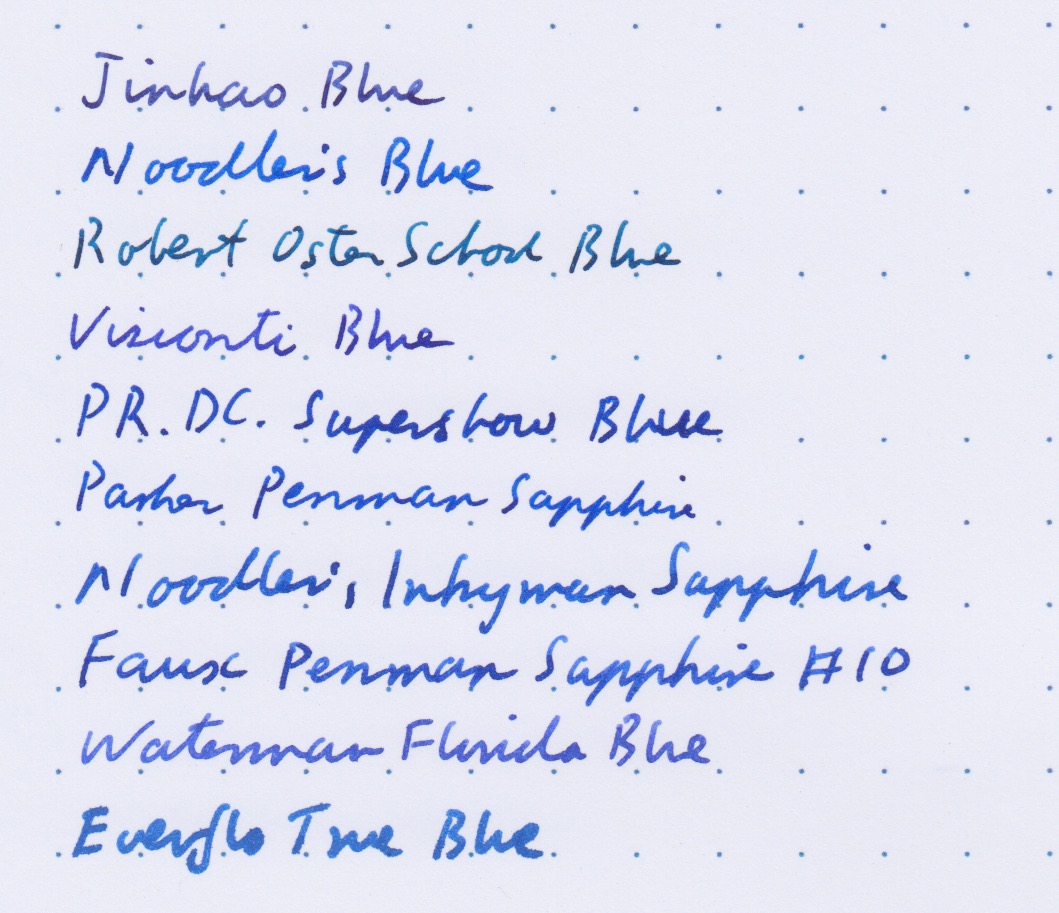 Jinhao Blue
Noodler's Blue
Robert Oster School Blue
Visconti Blue
PR. DC. Supershow Blue
Parker Penman Sapphire
Noodler's Inkyman Sapphire
Faux Penman Sapphire #10
Waterman Florida Blue
Everflo True Blue